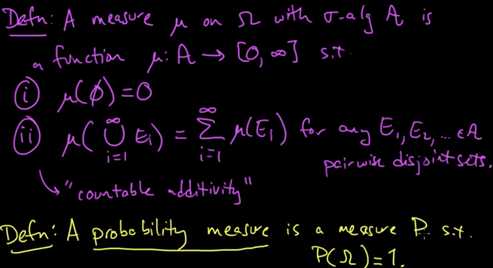 Defn: A measure μ on Ω with σ-alg A is
a function μ: A → [0, ∞] s.t.
(i) μ(∅) = 0
(ii) μ(⋃_{i=1}^{∞} E_i) = ∑_{i=1}^{∞} μ(E_i) for any E_1, E_2, ... ∈ A
pairwise disjoint sets.
↳ "countable additivity"
Defn: A probability measure is a measure P. s.t.
P(Ω) = 1.